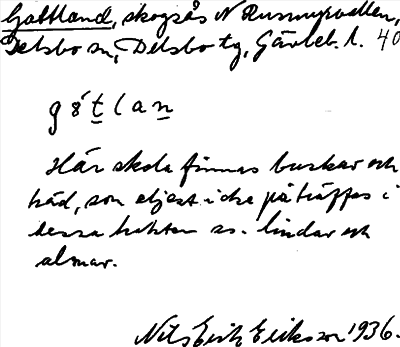 Gottland, skogsås N Rusmyrvallen,
Delsbo sn, Delsbo tg, Gävleb. l. 40
gótlan
Här skola finnas buskar och
träd, som eljest icke påträffas i
dessa trakter ss. lindar och
almar.
Nils Erik Eriksson 1936.